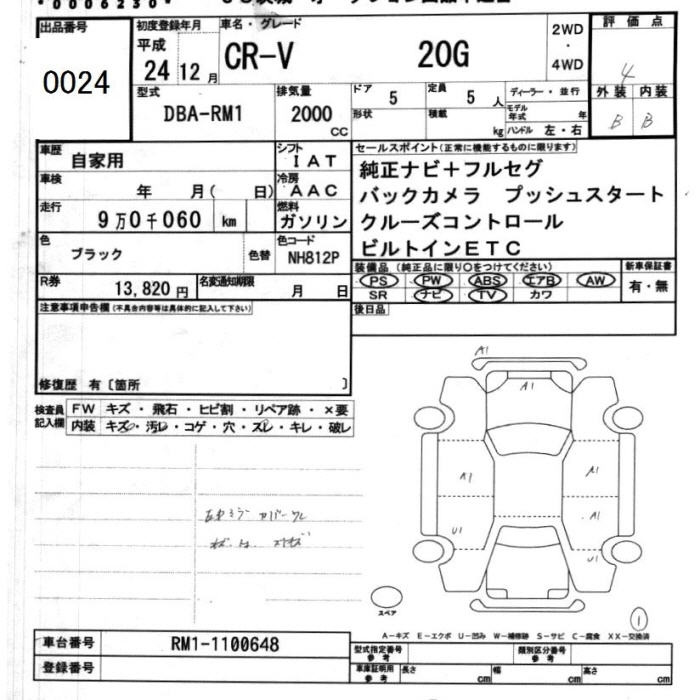 0006230
出品番号
0024
初度登録年月
平成
24 12 月
車名・グレード
CR-V 20G
2WD
・
4WD
評価点
4
外装 内装
B B
型式
DBA-RM1
排気量
2000
cc
ドア 5
定員 5 人
形状
積載 kg
ディーラー・並行
モデル年式 年
ハンドル 左・右
車歴 自家用
車検 年 月( 日)
走行 9万0千060 km
シフト IAT
冷房 AAC
燃料 ガソリン
色 ブラック 色替
色コード NH812P
R券 13,820円
名変通知期限 月 日
セールスポイント(正常に機能するものに限ります)
純正ナビ+フルセグ
バックカメラ プッシュスタート
クルーズコントロール
ビルトインETC
装備品(純正品に限り○をつけてください)
PS PW ABS エアB AW
SR ナビ TV カワ
新車保証書
有・無
後日品
注意事項申告欄(不具合内容等は具体的に記入して下さい)
修復歴 有〔箇所 〕
検査員
記入欄
FW キズ・飛石・ヒビ割・リペア跡・×要
内装 キズ・汚レ・コゲ・穴・スレ・キレ・破レ
A1
A1
A1
A1
A1
U1
U1
スペア
1
A-キズ E-エクボ U-凹み W-補修跡 S-サビ C-腐食 XX-交換済
車台番号 RM1-1100648
登録番号
型式指定番号
参考
類別区分番号
参考
車庫証明用
参考
長さ cm
幅 cm
高さ cm